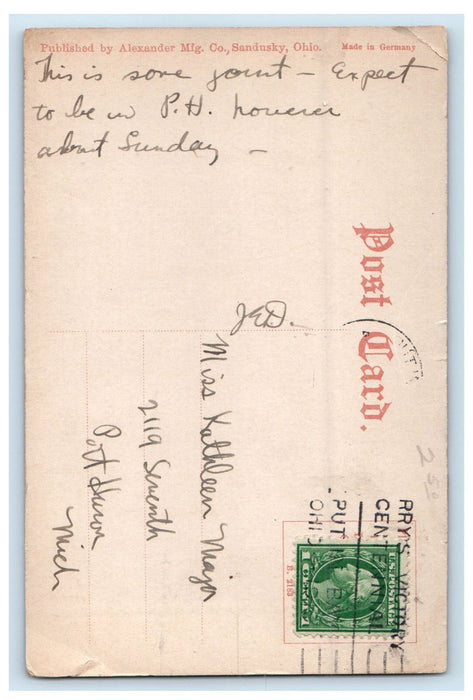 Published by Alexander Mfg. Co., Sandusky, Ohio. Made in Germany
This is some joint - Expect
to be in P.H. however
about Sunday -
J.E.D.
Post Card.
Miss Kathleen Major
2119 Seventh
Port Huron
Mich
2 50
RRY'S VICTORY
CENTENNIAL
PUT
OHIO
B. 218
U.S. POSTAGE
1 CENT 1